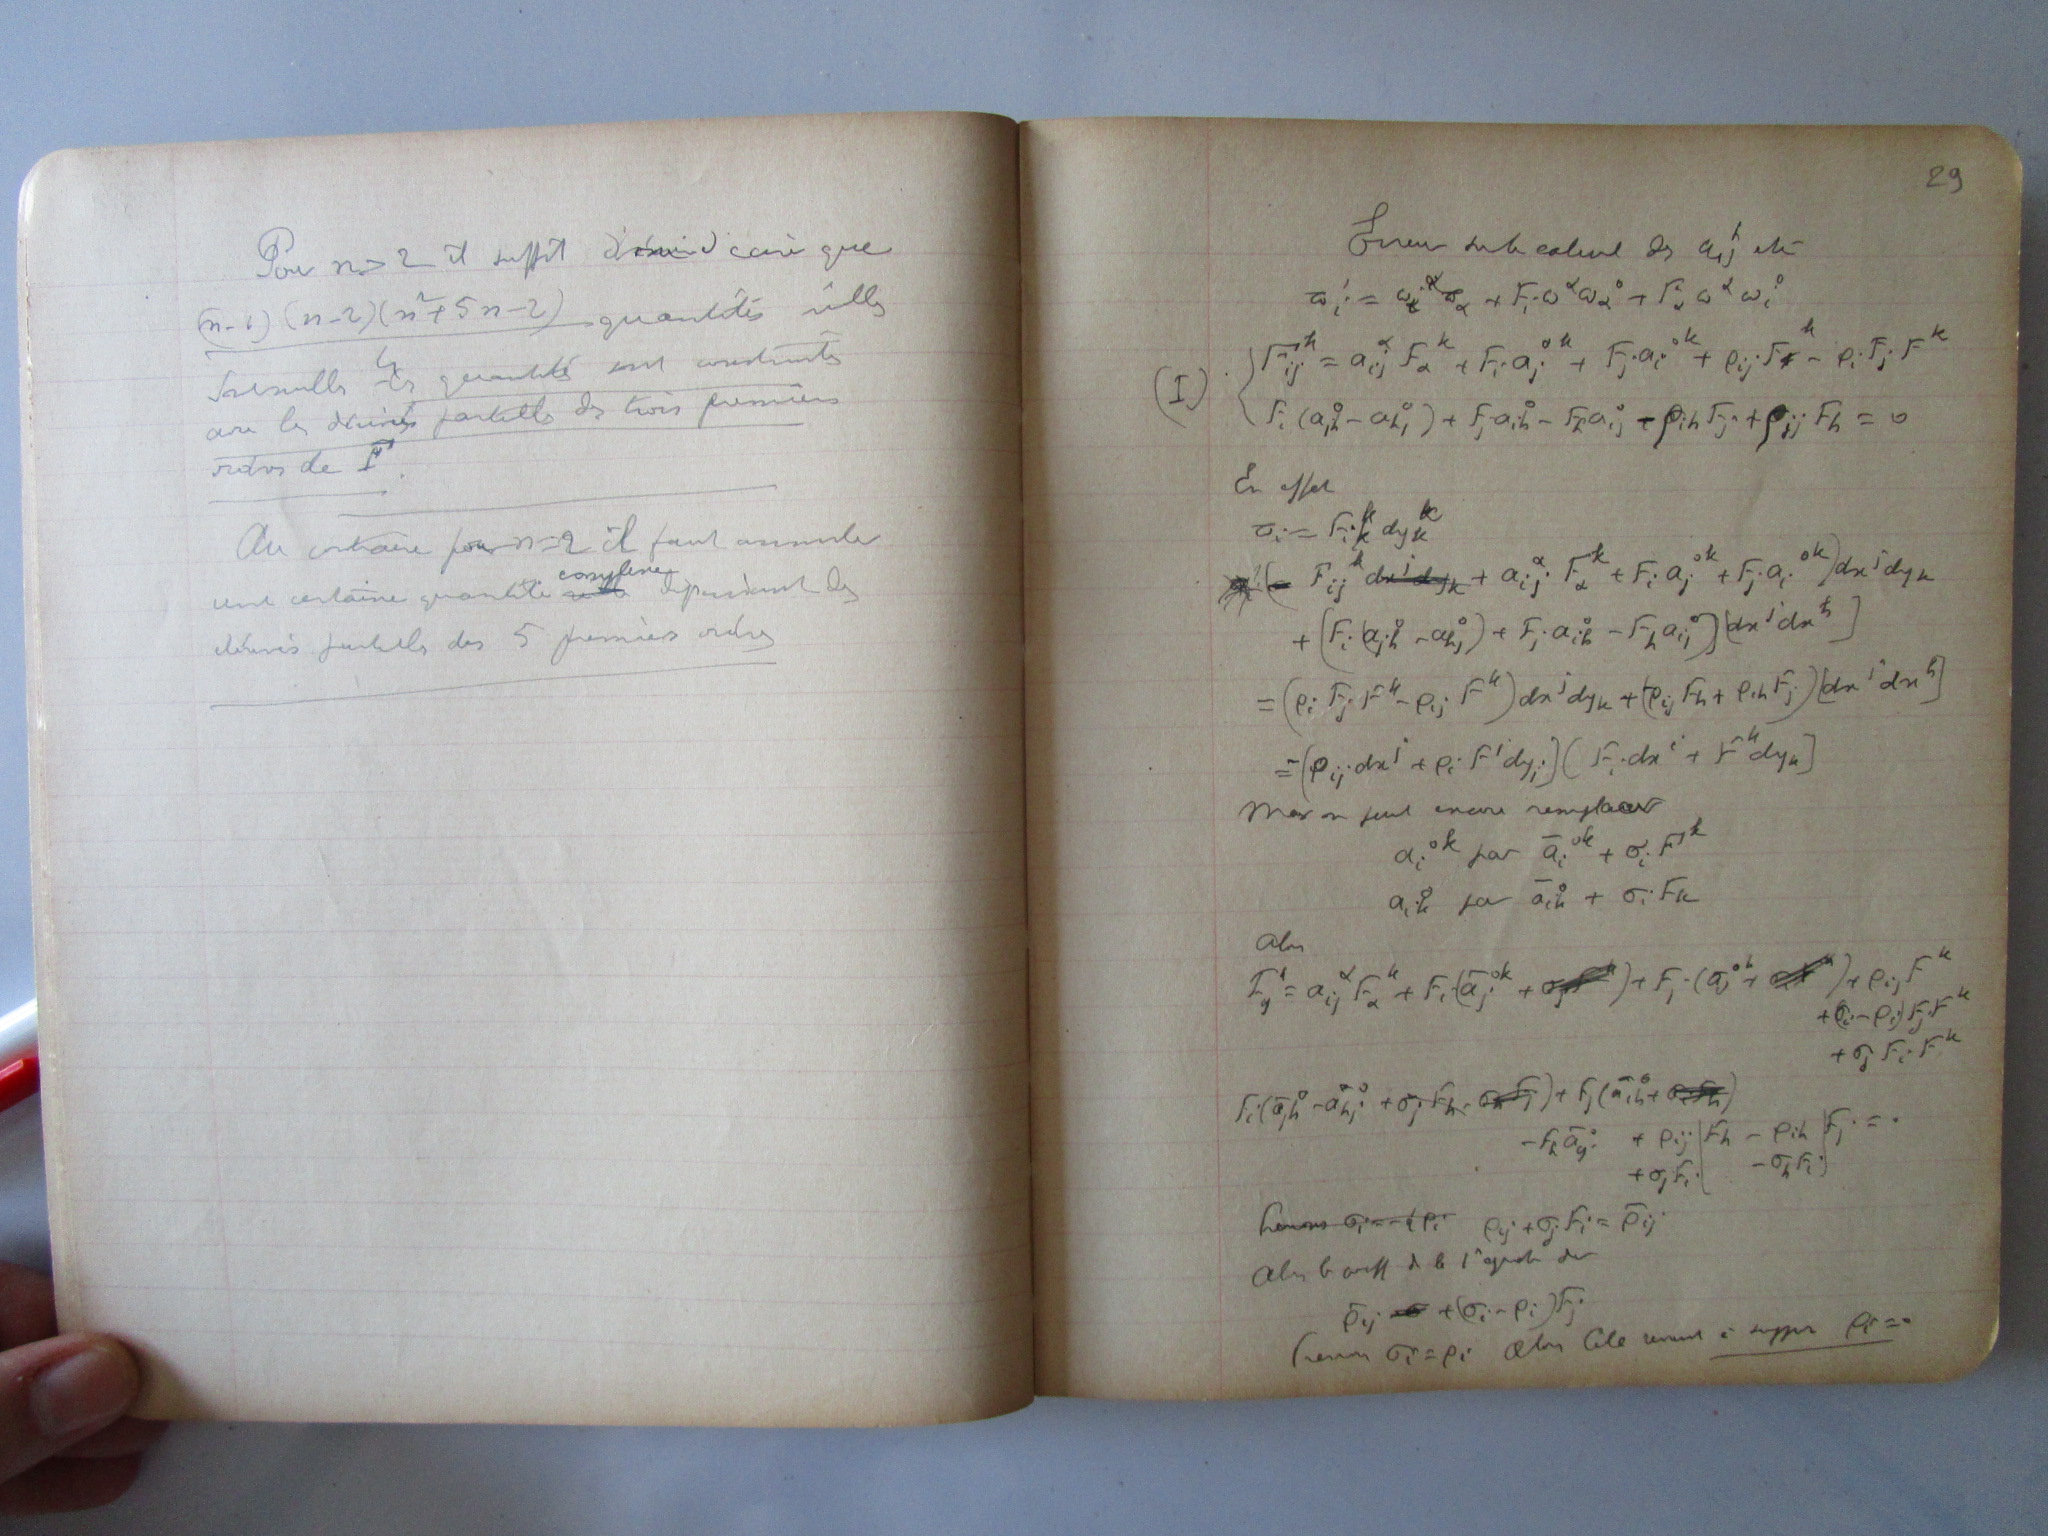 Pour n > 2 il suffit d'écrire que
(n-1)(n-2)(n²+5n-2) quantités réelles
4
sont nulles Ces quantités sont construites
avec les dérivées partielles des trois premiers
ordres de F.
Au contraire pour n=2 il faut annuler
une certaine quantité complexe dépendant des
dérivées partielles des 5 premiers ordres
29
Erreur sur le calcul des a_{ij}^k etc
ϖ_i' = ω_i^α ϖ_α + F_i ω^α ω_α^0 + F_α ω^α ω_i^0
(I) F_{ij}^k = a_{ij}^α F_α^k + F_i a_j^{0k} + F_j a_i^{0k} + ρ_{ij} F^k - ρ_i F_j F^k
F_i (a_{jh}^0 - a_{hj}^0) + F_j a_{ih}^0 - F_h a_{ij}^0 - ρ_{ih} F_j + ρ_{ij} F_h = 0
En effet
ϖ_i = F_i^k dy_k
(- F_{ij}^k + a_{ij}^α F_α^k + F_i a_j^{0k} + F_j a_i^{0k}) dx^j dy_k
+ [F_i (a_{jh}^0 - a_{hj}^0) + F_j a_{ih}^0 - F_h a_{ij}^0] [dx^j dx^h]
= (ρ_i F_j F^k - ρ_{ij} F^k) dx^j dy_k + (-ρ_{ij} F_h + ρ_{ih} F_j) [dx^j dx^h]
= -[ρ_{ij} dx^j + ρ_i F^j dy_j] [F_i dx^i + F^k dy_k]
Mais on peut encore remplacer
a_i^{0k} par ā_i^{0k} + σ_i F^k
a_{ik}^0 par ā_{ik}^0 + σ_i F_k
Alors
F_{ij}^k = a_{ij}^α F_α^k + F_i (ā_j^{0k} + ) + F_j (ā_i^{0k} + ) + ρ_{ij} F^k
+ (σ_i - ρ_i) F_j F^k
+ σ_j F_i F^k
F_i (ā_{jh}^0 - ā_{hj}^0 + σ_j F_h - σ_h F_j) + F_j (ā_{ih}^0 + σ_i F_h)
- F_h ā_{ij}^0 + ρ_{ij} | F_h - ρ_{ih} | F_j = 0
+ σ_j F_i | - σ_h F_i |
Prenons σ_i = - ρ_i ρ_{ij} + σ_j F_i = ρ̄_{ij}
Alors le coeff de la 1e
ρ̄_{ij} + (σ_i - ρ_i) F_j
Prenons σ_i = ρ_i Alors Cela revient à supposer ρ_i = 0